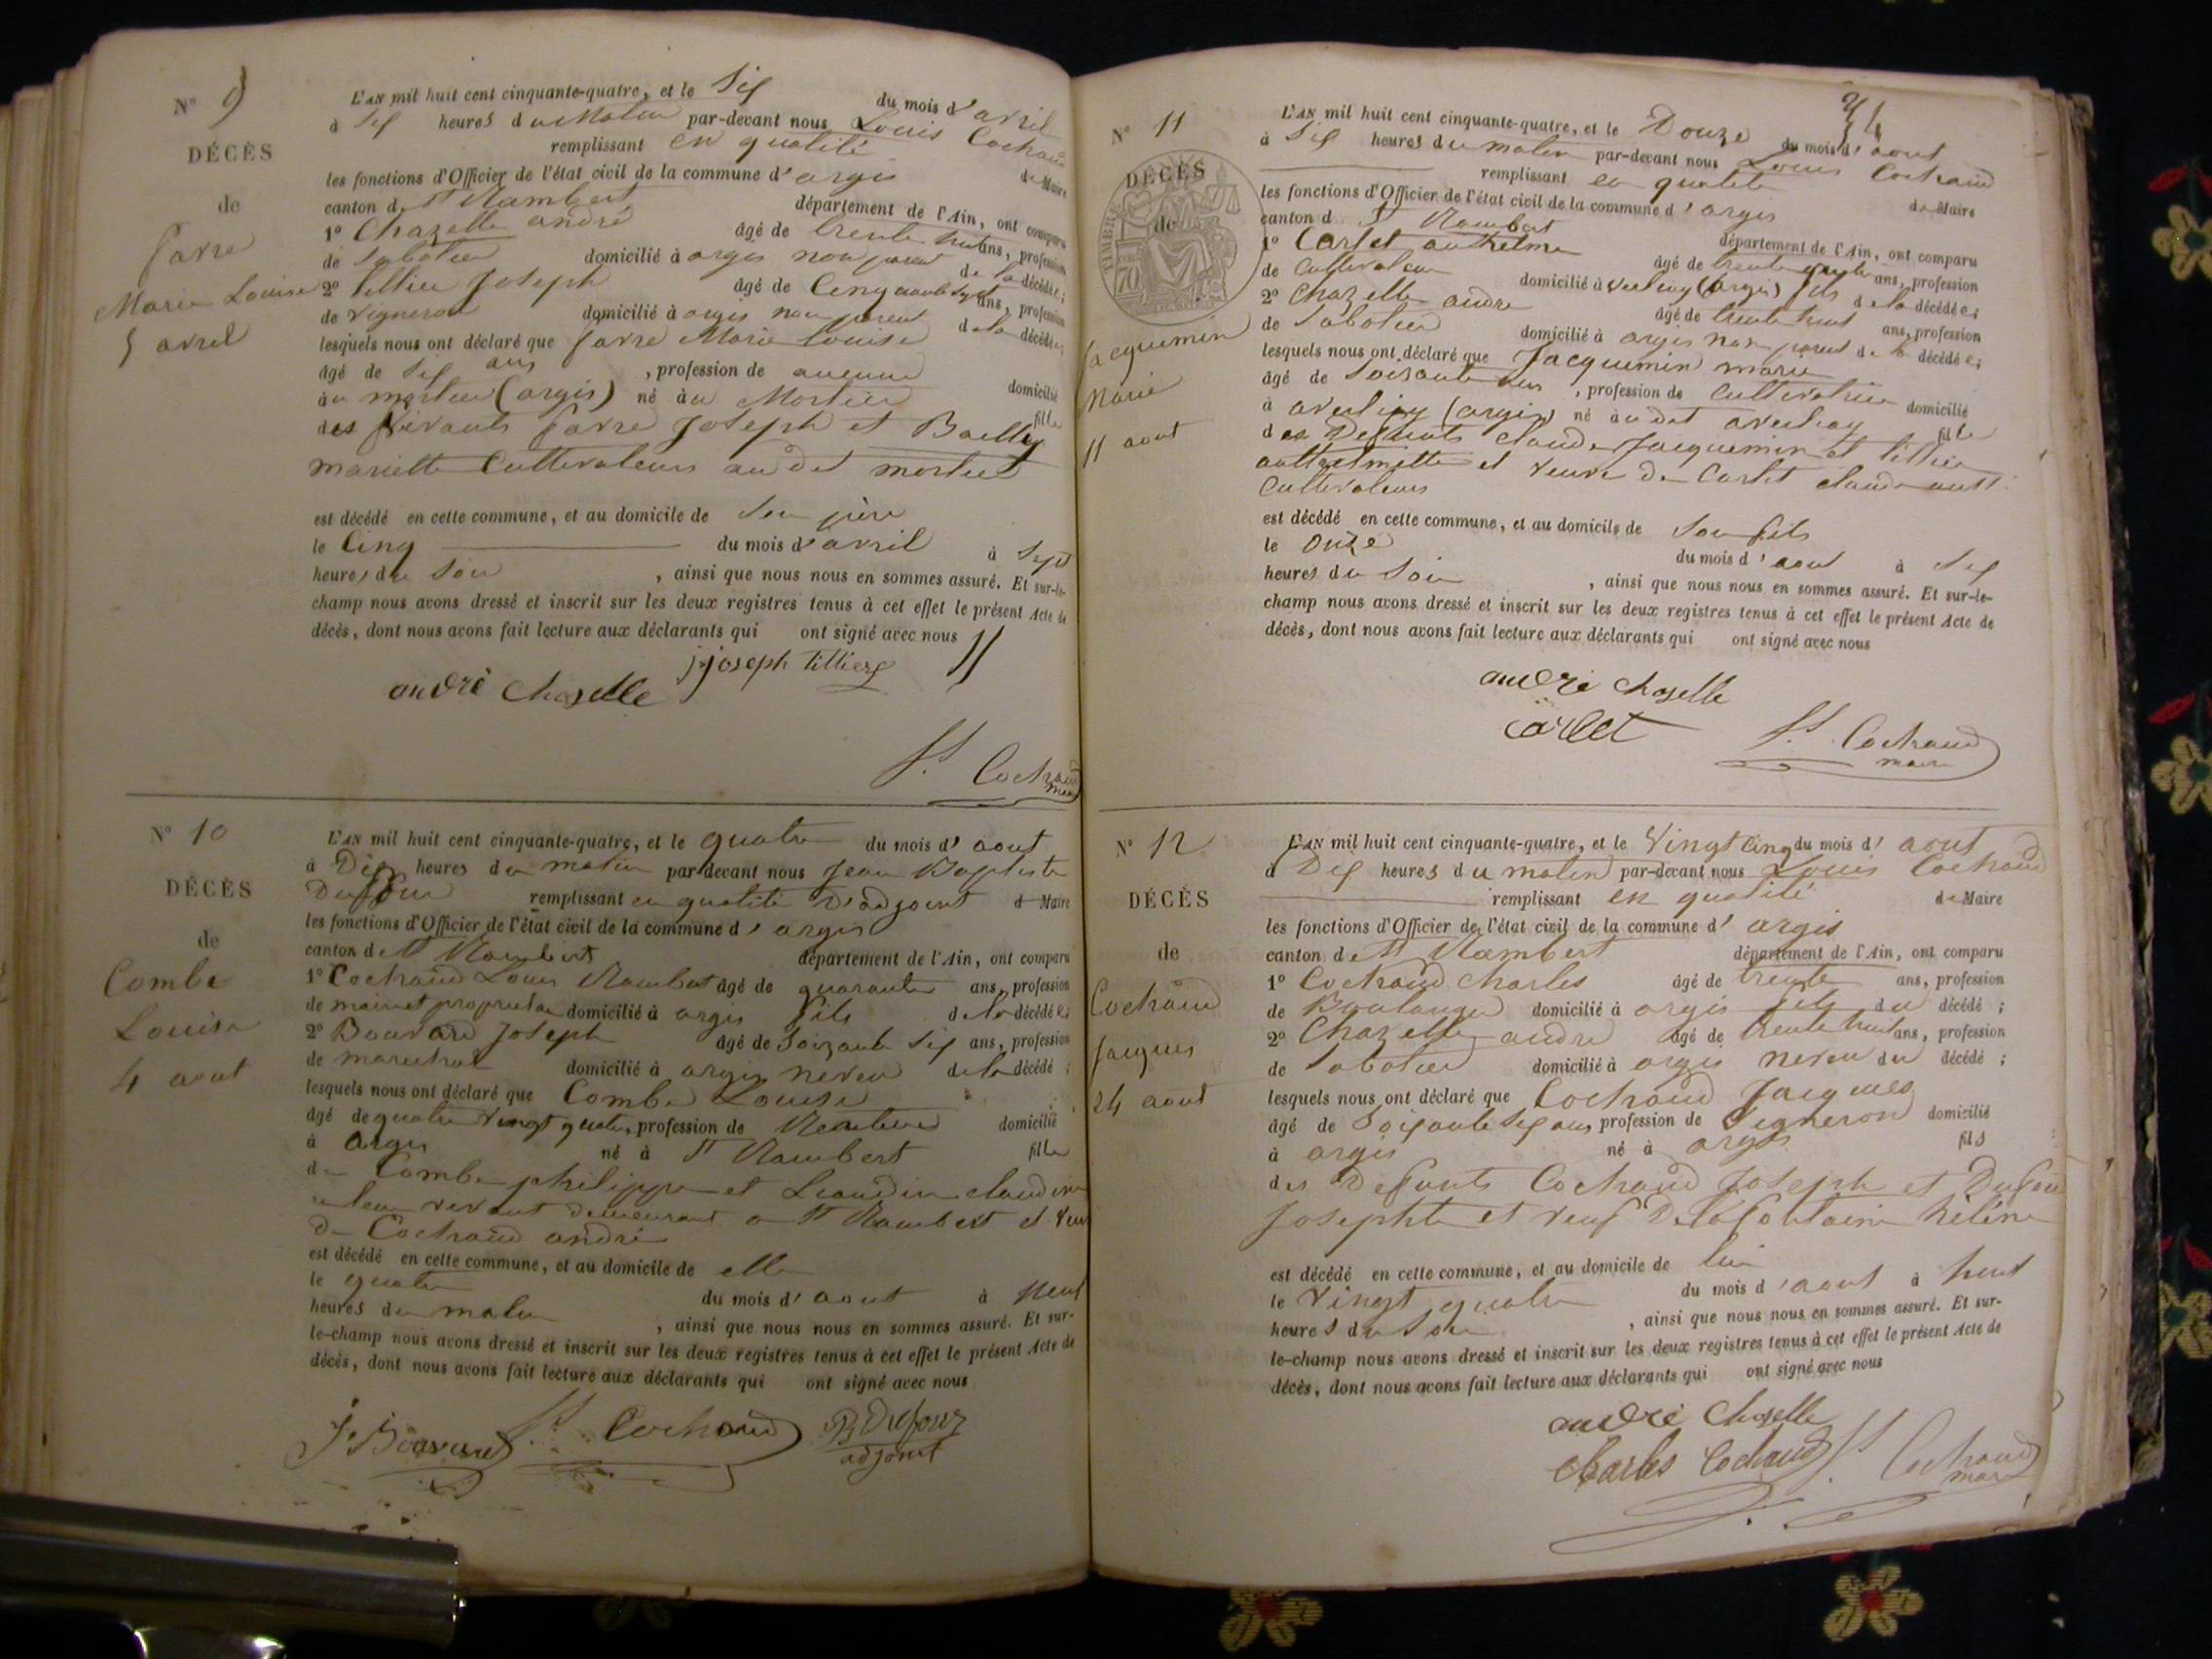 N° 9
DÉCÈS
de
Favre
Marie Louise
5 avril
L'AN mil huit cent cinquante-quatre, et le Six du mois d'avril
à Six heures du Matin par-devant nous Louis Cochaud
remplissant en qualité de Maire
les fonctions d'Officier de l'état civil de la commune d'argis
canton de St Rambert département de l'Ain, ont comparu
1° Chazelle andré âgé de trente huit ans, profession
de Sabotier domicilié à argis non parent de la décédée;
2° Tillier Joseph âgé de Cinquante Sept ans, profession
de Vigneron domicilié à argis non parent de la décédée;
lesquels nous ont déclaré que Favre Marie Louise
âgé de Six ans, profession de aucune domicilié
au mortier (argis) né au Mortier fille
des vivants Favre Joseph et Bailly
mariette Cultivateurs au dit mortier
est décédé en cette commune, et au domicile de Son père
le Cinq du mois d'avril à Sept
heures du Soir, ainsi que nous nous en sommes assuré. Et sur-le-
champ nous avons dressé et inscrit sur les deux registres tenus à cet effet le présent Acte de
décès, dont nous avons fait lecture aux déclarants qui ont signé avec nous
joseph tillier
andré chazelle
Cochaud
maire
N° 10
DÉCÈS
de
Combe
Louise
4 aout
L'AN mil huit cent cinquante-quatre, et le quatre du mois d'aout
à Dix heures du matin par-devant nous Jean Baptiste
Dufour remplissant en qualité D'adjoint d Maire
les fonctions d'Officier de l'état civil de la commune d'argis
canton de St Rambert département de l'Ain, ont comparu
1° Cochaud Louis Rambert âgé de quarante ans, profession
de maire et propriétaire domicilié à argis fils de la décédée;
2° Bouvard Joseph âgé de Soixante Six ans, profession
de marechal domicilié à argis neveu de la décédé;
lesquels nous ont déclaré que Combe Louise
âgé de quatre vingt quatre, profession de Rentière domicilié
à argis né à St Rambert fille
de Combe philippe et claudine
de leur vivant demeurant a St Rambert et Veuve
de Cochaud andré
est décédé en cette commune, et au domicile de elle
le quatre du mois d'aout à Neuf
heures du matin, ainsi que nous nous en sommes assuré. Et sur-
le-champ nous avons dressé et inscrit sur les deux registres tenus à cet effet le présent Acte de
décès, dont nous avons fait lecture aux déclarants qui ont signé avec nous
J. Bouvard Cochaud B Dufour
adjoint
N° 11
DÉCÈS
de
Jacquemin
Marie
11 aout
TIMBRE
70
L'AN mil huit cent cinquante-quatre, et le Douze du mois d'aout
à Six heures du matin par-devant nous Louis Cochaud
remplissant en qualité de Maire
les fonctions d'Officier de l'état civil de la commune d'argis
canton d St Rambert département de l'Ain, ont comparu
1° Carlet anthelme âgé de trente ans, profession
de Cultivateur domicilié à (argis) fils de la décédée;
2° Chazelle andre âgé de trente huit ans, profession
de Sabotier domicilié à argis non parent de la décédée;
lesquels nous ont déclaré que Jacquemin marie
âgé de Soixante ans, profession de Cultivatrice domicilié
à (argis) né audit fille
des Defunts claude Jacquemin et tillier
et Veuve de Carlet claude
Cultivateurs
est décédé en cette commune, et au domicile de Son fils
le onze du mois d'aout à Six
heures du Soir, ainsi que nous nous en sommes assuré. Et sur-le-
champ nous avons dressé et inscrit sur les deux registres tenus à cet effet le présent Acte de
décès, dont nous avons fait lecture aux déclarants qui ont signé avec nous
andré chazelle
Carlet Cochaud
maire
N° 12
DÉCÈS
de
Cochaud
Jacques
24 aout
L'AN mil huit cent cinquante-quatre, et le Vingt Cinq du mois d'aout
à Dix heures du matin par-devant nous Louis Cochaud
remplissant en qualité de Maire
les fonctions d'Officier de l'état civil de la commune d'argis
canton de St Rambert département de l'Ain, ont comparu
1° Cochaud Charles âgé de trente ans, profession
de Boulanger domicilié à argis fils du décédé;
2° Chazelle andré âgé de trente huit ans, profession
de Sabotier domicilié à argis neveu du décédé;
lesquels nous ont déclaré que Cochaud Jacques
âgé de Soixante Six ans profession de Vigneron domicilié
à argis né à argis fils
des Defunts Cochaud Joseph et Dufour
Josephte et veuf De Lafontaine hélène
est décédé en cette commune, et au domicile de lui
le Vingt quatre du mois d'aout à huit
heures du Soir, ainsi que nous nous en sommes assuré. Et sur-
le-champ nous avons dressé et inscrit sur les deux registres tenus à cet effet le présent Acte de
décès, dont nous avons fait lecture aux déclarants qui ont signé avec nous
andré chazelle
Charles Cochaud Cochaud
maire